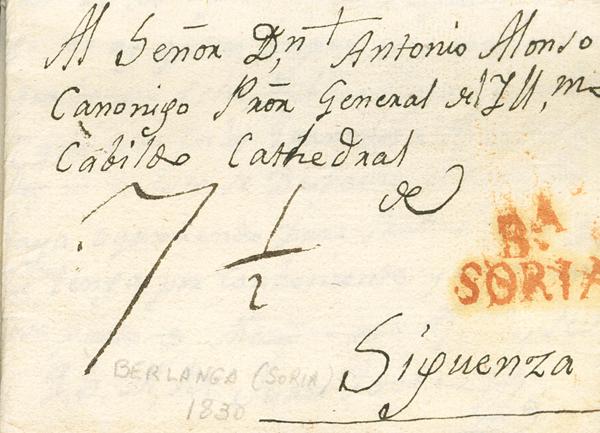 Al Señor D,n Antonio Alonso
Canonigo Prõr General del Ill,mo
Cabildo Cathedral
de
7 1/2
Bᴬ
SORIA
Siguenza
BERLANGA (SORIA)
1830